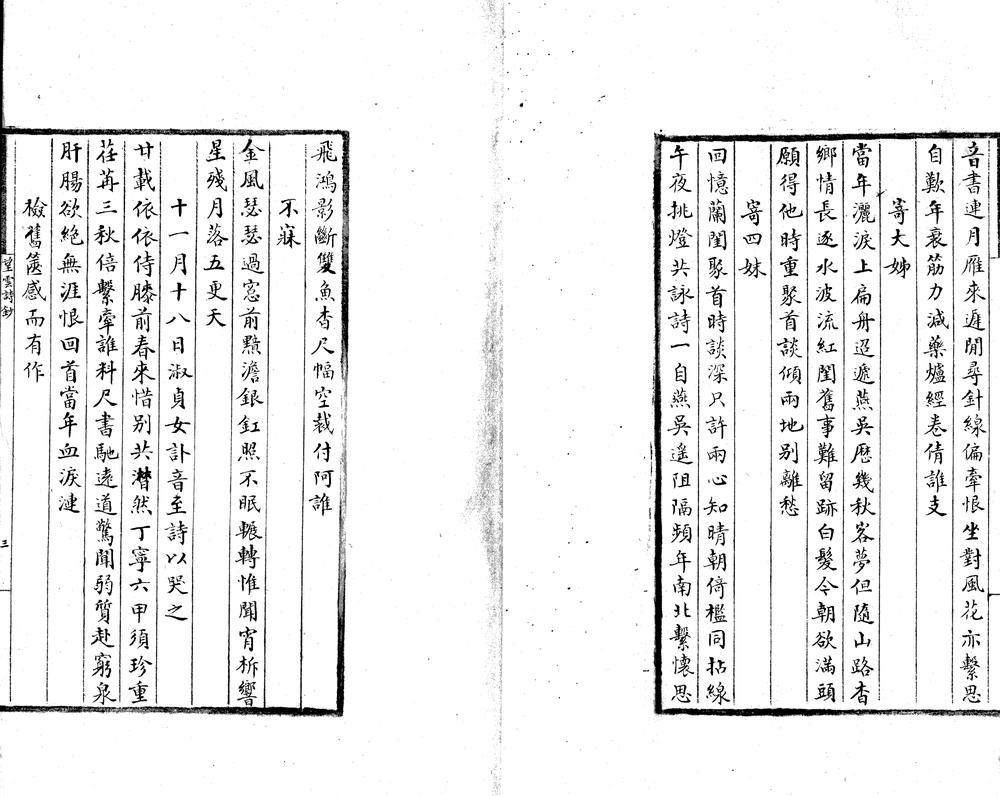 音書連月雁來遲閒尋針線偏牽恨坐對風花亦繫思
自歎年衰筋力減藥爐經卷倩誰支
寄大姊
當年灑淚上扁舟迢遞燕吳歷幾秋客夢但隨山路杳
鄉情長逐水波流紅閨舊事難留跡白髮今朝欲滿頭
願得他時重聚首談傾兩地別離愁
寄四妹
回憶蘭閨聚首時談深只許兩心知晴朝倚檻同拈線
午夜挑燈共詠詩一自燕吳遙阻隔頻年南北繫懷思
飛鴻影斷雙魚杳尺幅空裁付阿誰
不寐
金風瑟瑟過窓前黯澹銀釭照不眠輾轉惟聞宵柝響
星殘月落五更天
十一月十八日淑貞女訃音至詩以哭之
廿載依依侍膝前春來惜別共潸然丁寧六甲須珍重
荏苒三秋倍繫牽誰料尺書馳遠道驚聞弱質赴窮泉
肝腸欲絕無涯恨回首當年血淚漣
檢舊箧感而有作
望雲詩鈔
三